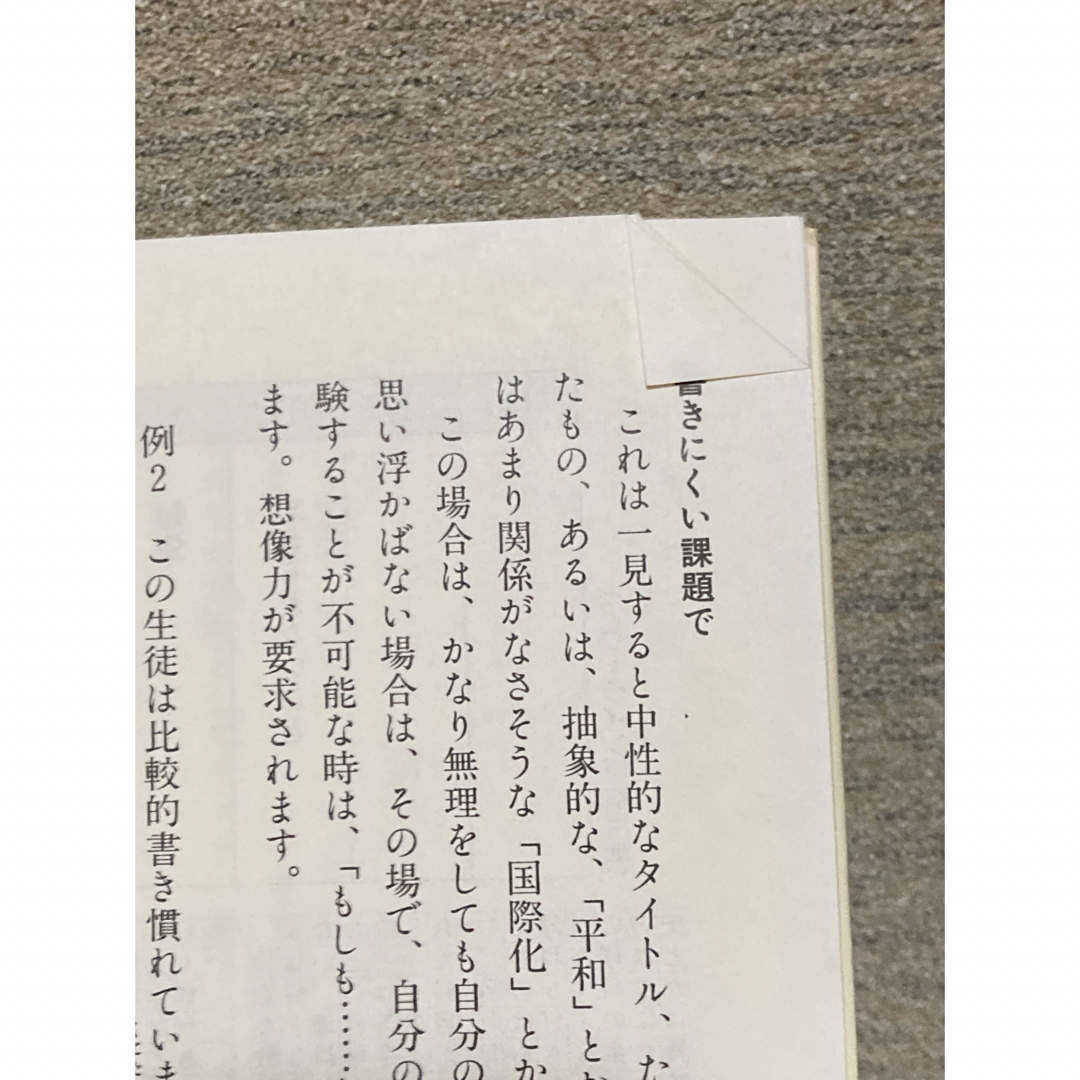 書きにくい課題で
これは一見すると中性的なタイトル、た
たもの、あるいは、抽象的な、「平和」とか
はあまり関係がなさそうな「国際化」とか
この場合は、かなり無理をしても自分の
思い浮かばない場合は、その場で、自分の
験することが不可能な時は、「もしも……
ます。想像力が要求されます。
例2 この生徒は比較的書き慣れていま